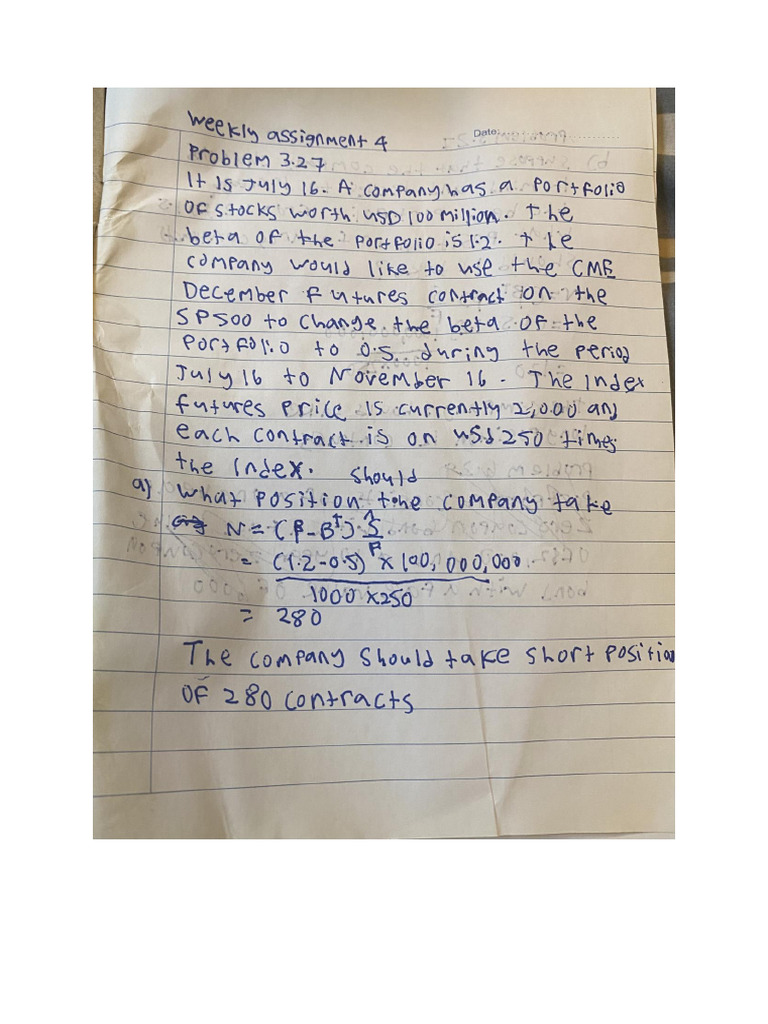 Weekly assignment 4
Date:
Problem 3.27
It is July 16. A company has a portfolio
of stocks worth USD 100 million. The
beta of the portfolio is 1.2. The
company would like to use the CME
December futures contract on the
SP500 to change the beta of the
portfolio to 0.5 during the period
July 16 to November 16. The index
futures price is currently 2,000 and
each contract is on usd 250 times
the index.
should
a) what position the company take
N = (β - B†) Ŝ
F
= (1.2 - 0.5) × 100,000,000
1000 × 250
= 280
The company should take short position
of 280 contracts